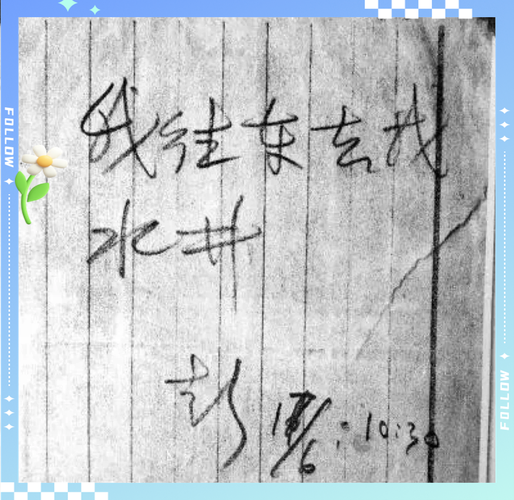 我往东去找
水井
彭
17/6:10:30
FOLLOW
FOLLOW